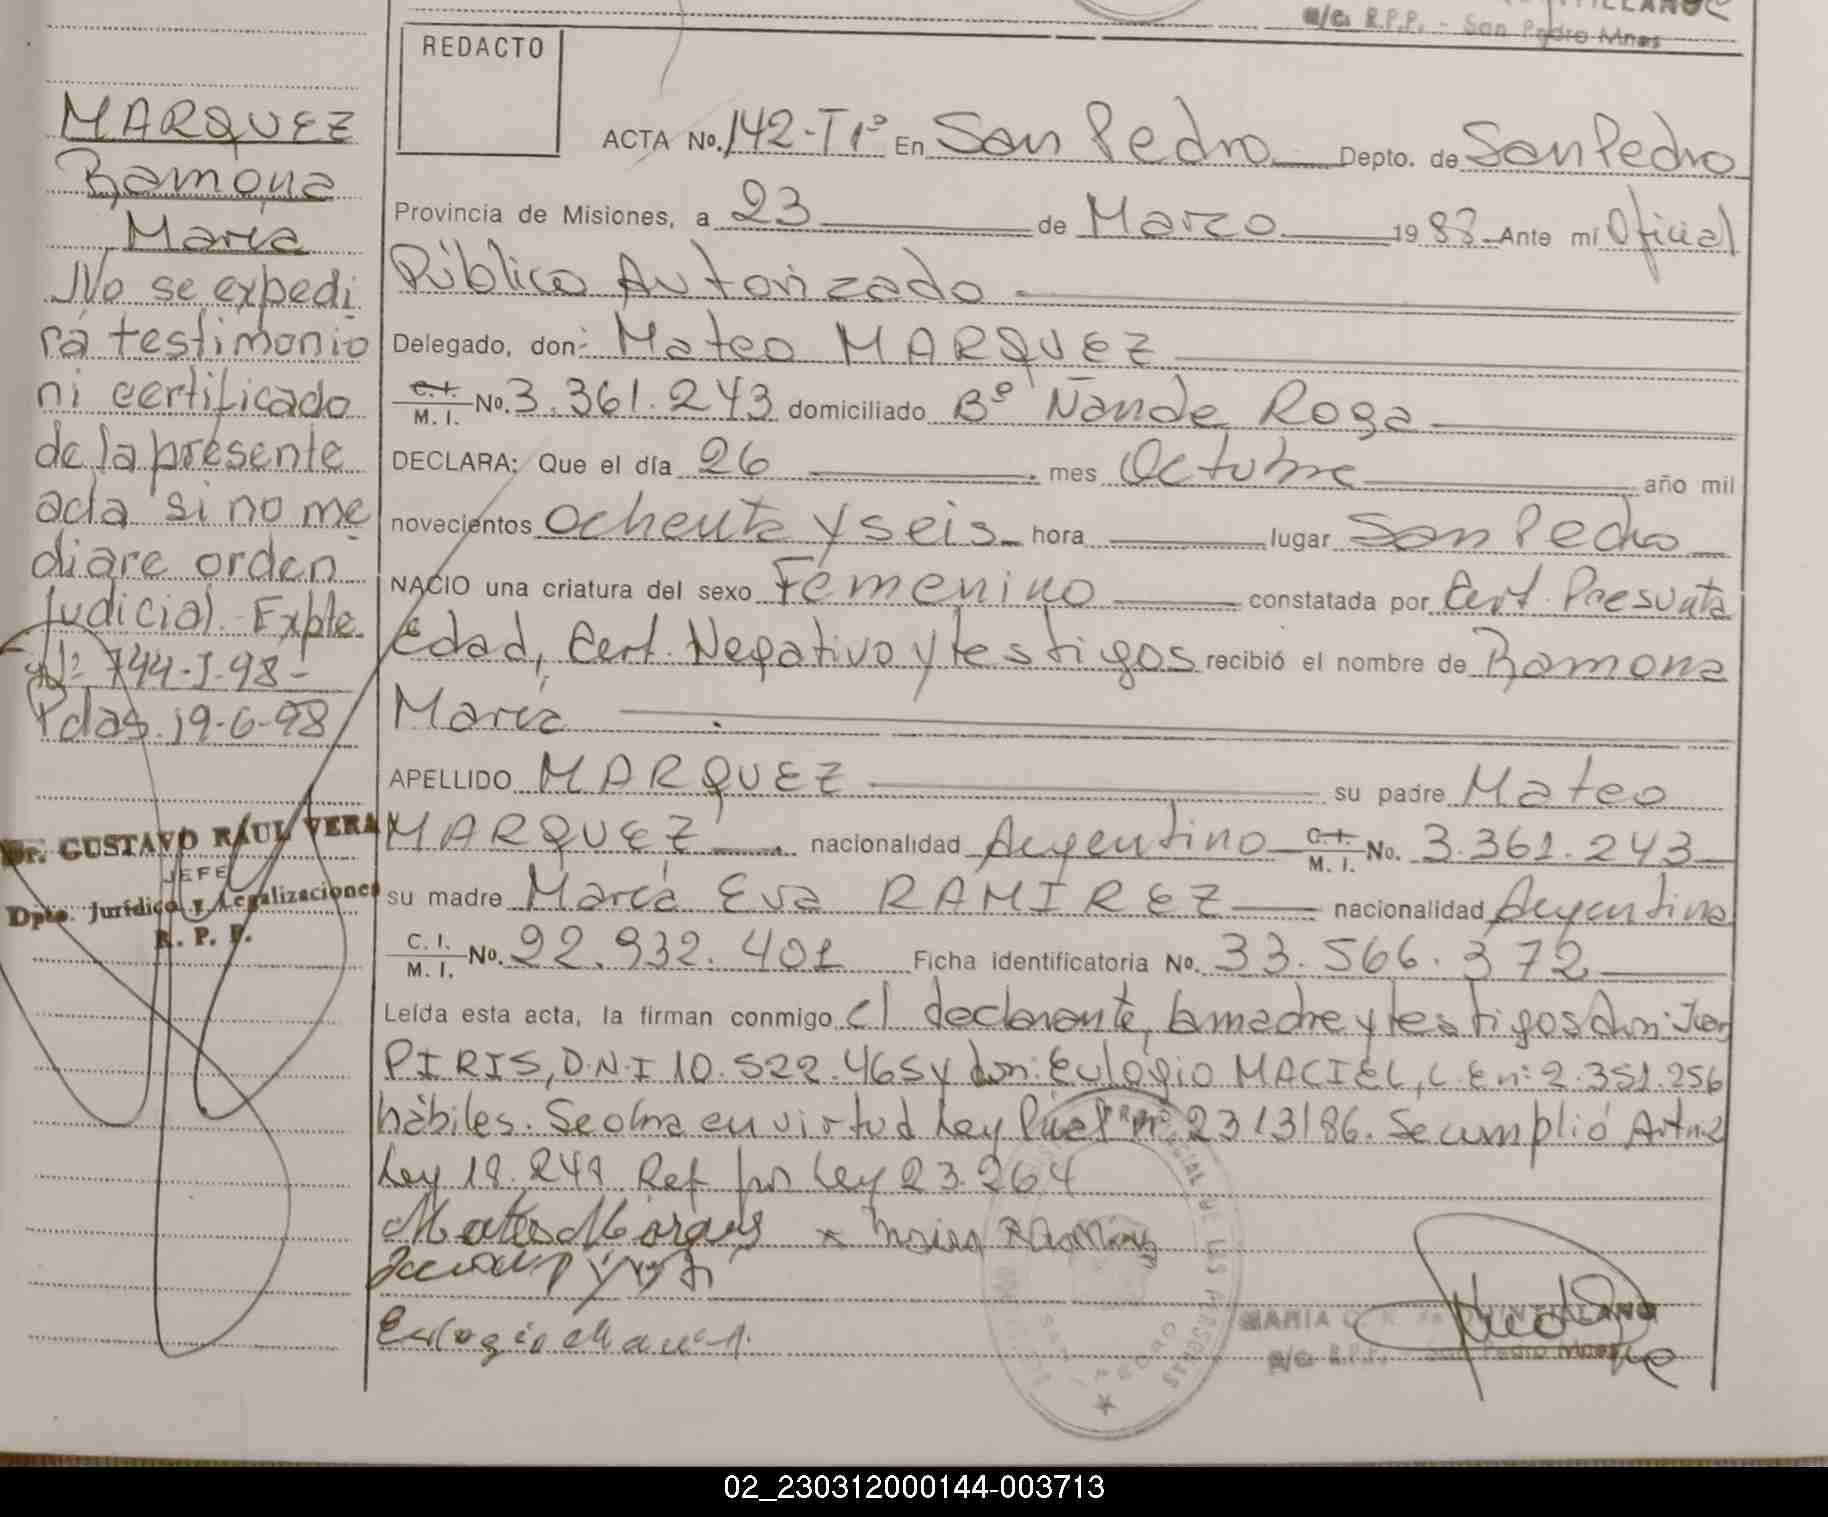 a/c. R.P.P. - San Pedro Mnes
REDACTO
MARQUEZ
Ramona
María
No se expedi
rá testimonio
ni certificado
de la presente
acta si no me
diare orden
Judicial. Expte.
Nº 744-J-98-
Pdas. 19-6-98
Dr. GUSTAVO RAUL VERA
JEFE
Dpto. Jurídico y Legalizaciones
R. P. P.
ACTA No. 142-Tº1º En San Pedro Depto. de San Pedro
Provincia de Misiones, a 23 de Marzo 1988 Ante mí Oficial
Público Autorizado
Delegado, don: Mateo MARQUEZ
C.I. M. I. No. 3.361.243 domiciliado Bº Ñande Roga
DECLARA: Que el día 26 mes Octubre año mil
novecientos ochenta y seis hora lugar San Pedro
NACIO una criatura del sexo Femenino constatada por Cert. Presunta
edad, Cert. Negativo y testigos recibió el nombre de Ramona
María
APELLIDO MARQUEZ su padre Mateo
MARQUEZ nacionalidad Argentino C.I. M. I. No. 3.361.243
su madre María Eva RAMIREZ nacionalidad Argentina
C. I. M. I. No. 22.932.401 Ficha identificatoria No. 33.566.372
Leída esta acta, la firman conmigo el declarante, la madre y testigos don: Juan
PIRIS, D.N.I 10.522.465 y don: Eulogio MACIEL, L.E nº 2.351.256
hábiles. Se obra en virtud Ley Pcial nº 2313/86. Se cumplió Art nº 2
Ley 18.248 Ref por Ley 23.264
Mateo Marques x María Ramires
Eulogio Maciel
MARIA QUINTILLANO
a/c R.P.P. San Pedro Mnes
02_230312000144-003713